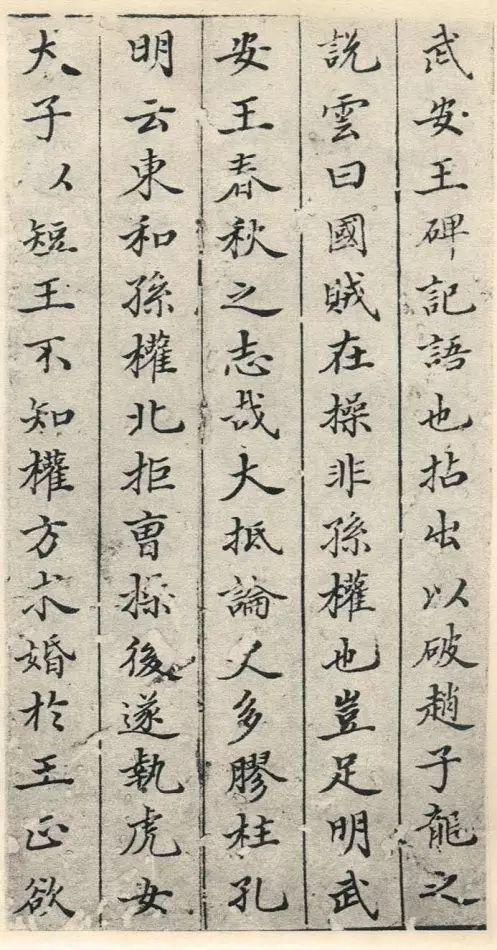 武安王碑記語也拈出以破趙子龍之
說雲曰國賊在操非孫權也豈足明武
安王春秋之志哉大抵論人多膠柱孔
明云東和孫權北拒曹操後遂執虎女
犬子以短王不知權方求婚於王正欲